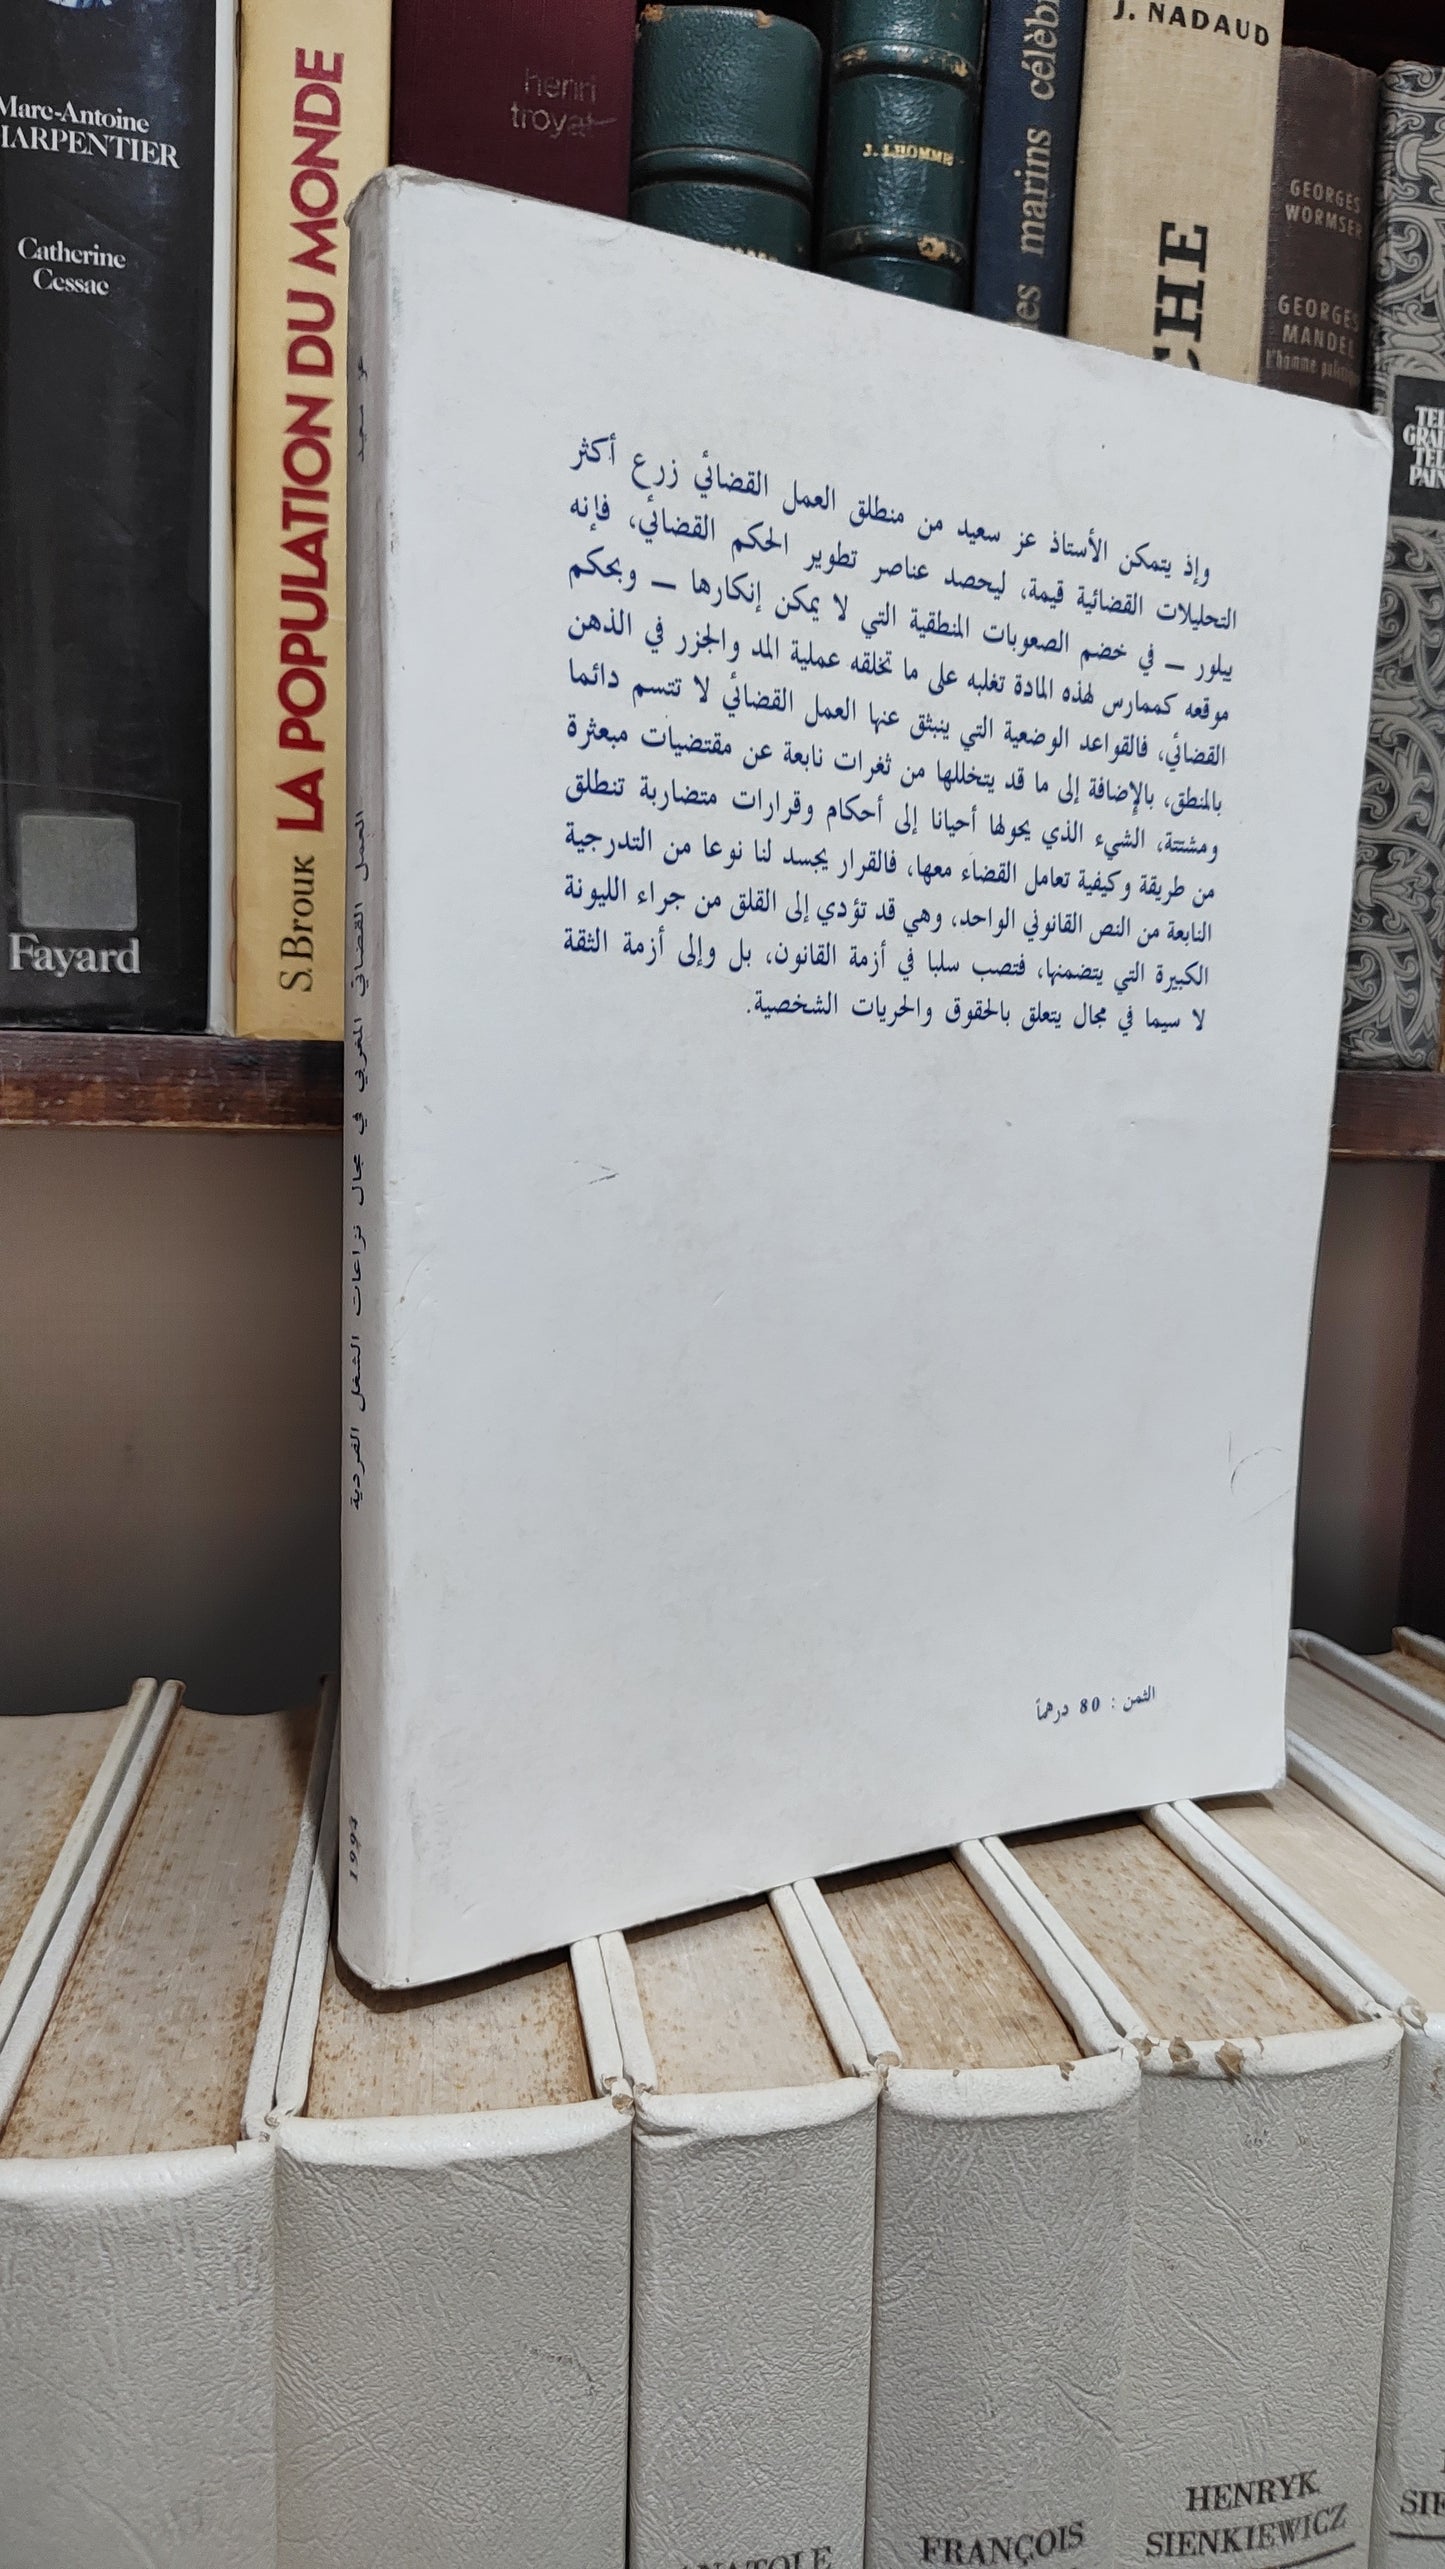 Marc-Antoine
HARPENTIER
Catherine
Cessac
Fayard
LA POPULATION DU MONDE
S. Brouk
henri
troyat
J. LHOMME
marins célèb
J. NADAUD
CHE
GEORGES
WORMSER
GEORGES
MANDEL
l'homme
TEL
GRAP
TEL
PAIN
عز سعيد
العمل القضائي المغربي في مجال نزاعات الشغل الفردية
1994
وإذ يتمكن الأستاذ عز سعيد من منطلق العمل القضائي زرع أكثر
التحليلات القضائية قيمة، ليحصد عناصر تطوير الحكم القضائي، فإنه
يبلور — في خضم الصعوبات المنطقية التي لا يمكن إنكارها — وبحكم
موقعه كممارس لهذه المادة تغلبه على ما تخلقه عملية المد والجزر في الذهن
القضائي، فالقواعد الوضعية التي ينبثق عنها العمل القضائي لا تتسم دائما
بالمنطق، بالإضافة إلى ما قد يتخللها من ثغرات نابعة عن مقتضيات مبعثرة
ومشتتة، الشيء الذي يحولها أحيانا إلى أحكام وقرارات متضاربة تنطلق
من طريقة وكيفية تعامل القضاء معها، فالقرار يجسد لنا نوعا من التدرجية
النابعة من النص القانوني الواحد، وهي قد تؤدي إلى القلق من جراء الليونة
الكبيرة التي يتضمنها، فتصب سلبا في أزمة القانون، بل وإلى أزمة الثقة
لا سيما في مجال يتعلق بالحقوق والحريات الشخصية.
الثمن : 80 درهماً
ANATOLE
FRANÇOIS
HENRYK
SIENKIEWICZ
SIE